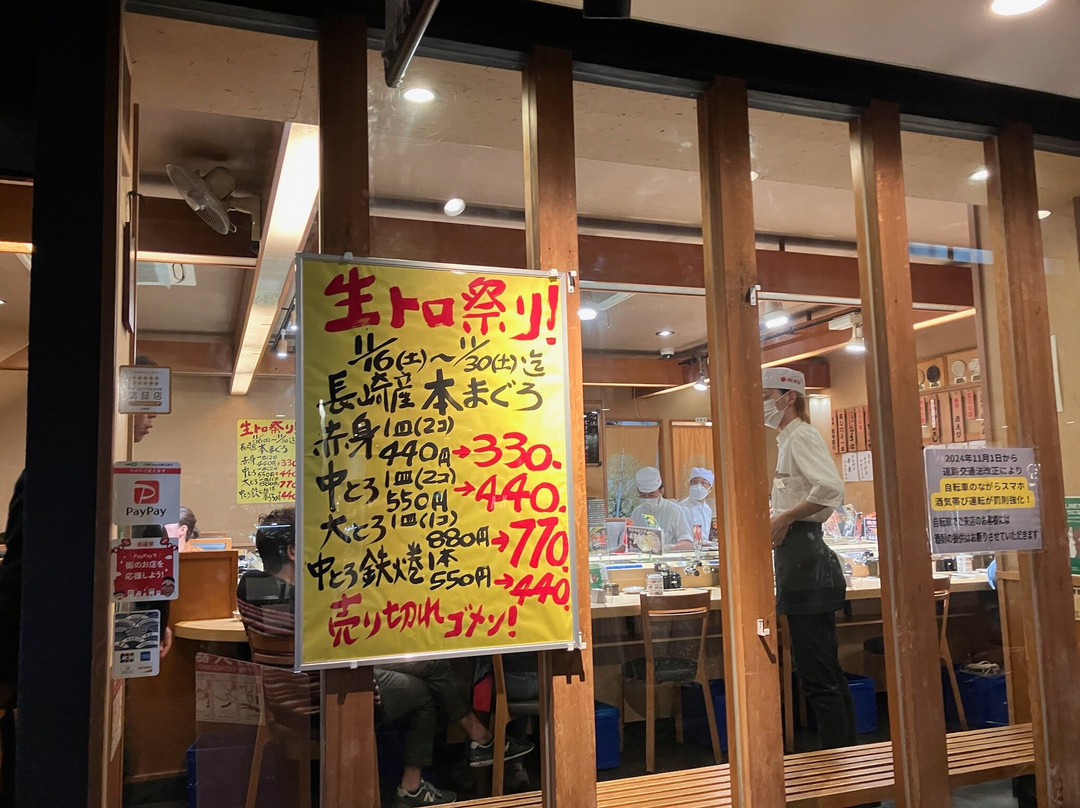 生トロ祭り!
11/16(土)～11/30(土)迄
長崎産 本まぐろ
赤身 1皿(2コ)
440円→330.
中とろ 1皿(2コ)
550円→440.
大とろ 1皿(1コ)
880円→770.
中とろ鉄火巻 1本
550円→440.
売り切れゴメン!
生トロ祭り!
PayPay
PayPayで
街のお店を
応援しよう!
認証店
2024年11月1日から
道路交通法改正により
自転車のながらスマホ
酒気帯び運転が罰則強化!
自転車でご来店のお客様には
酒類の提供はお断りさせていただきます